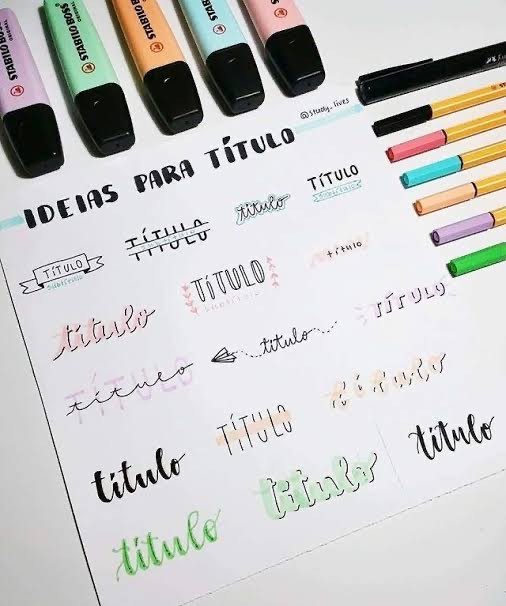 STABILO BOSS
ORIGINAL
STABILO BOSS
ORIGINAL
STABILO BOSS
STABILO BOSS
STABILO BOSS
@study_lives
IDEIAS PARA TÍTULO
TÍTULO
subtítulo
TÍTULO
título
TÍTULO
subtítulo
título
TÍTULO
subtítulo
título
TÍTULO
TÍTULO
título
título
título
TÍTULO
título
título
título
título
título